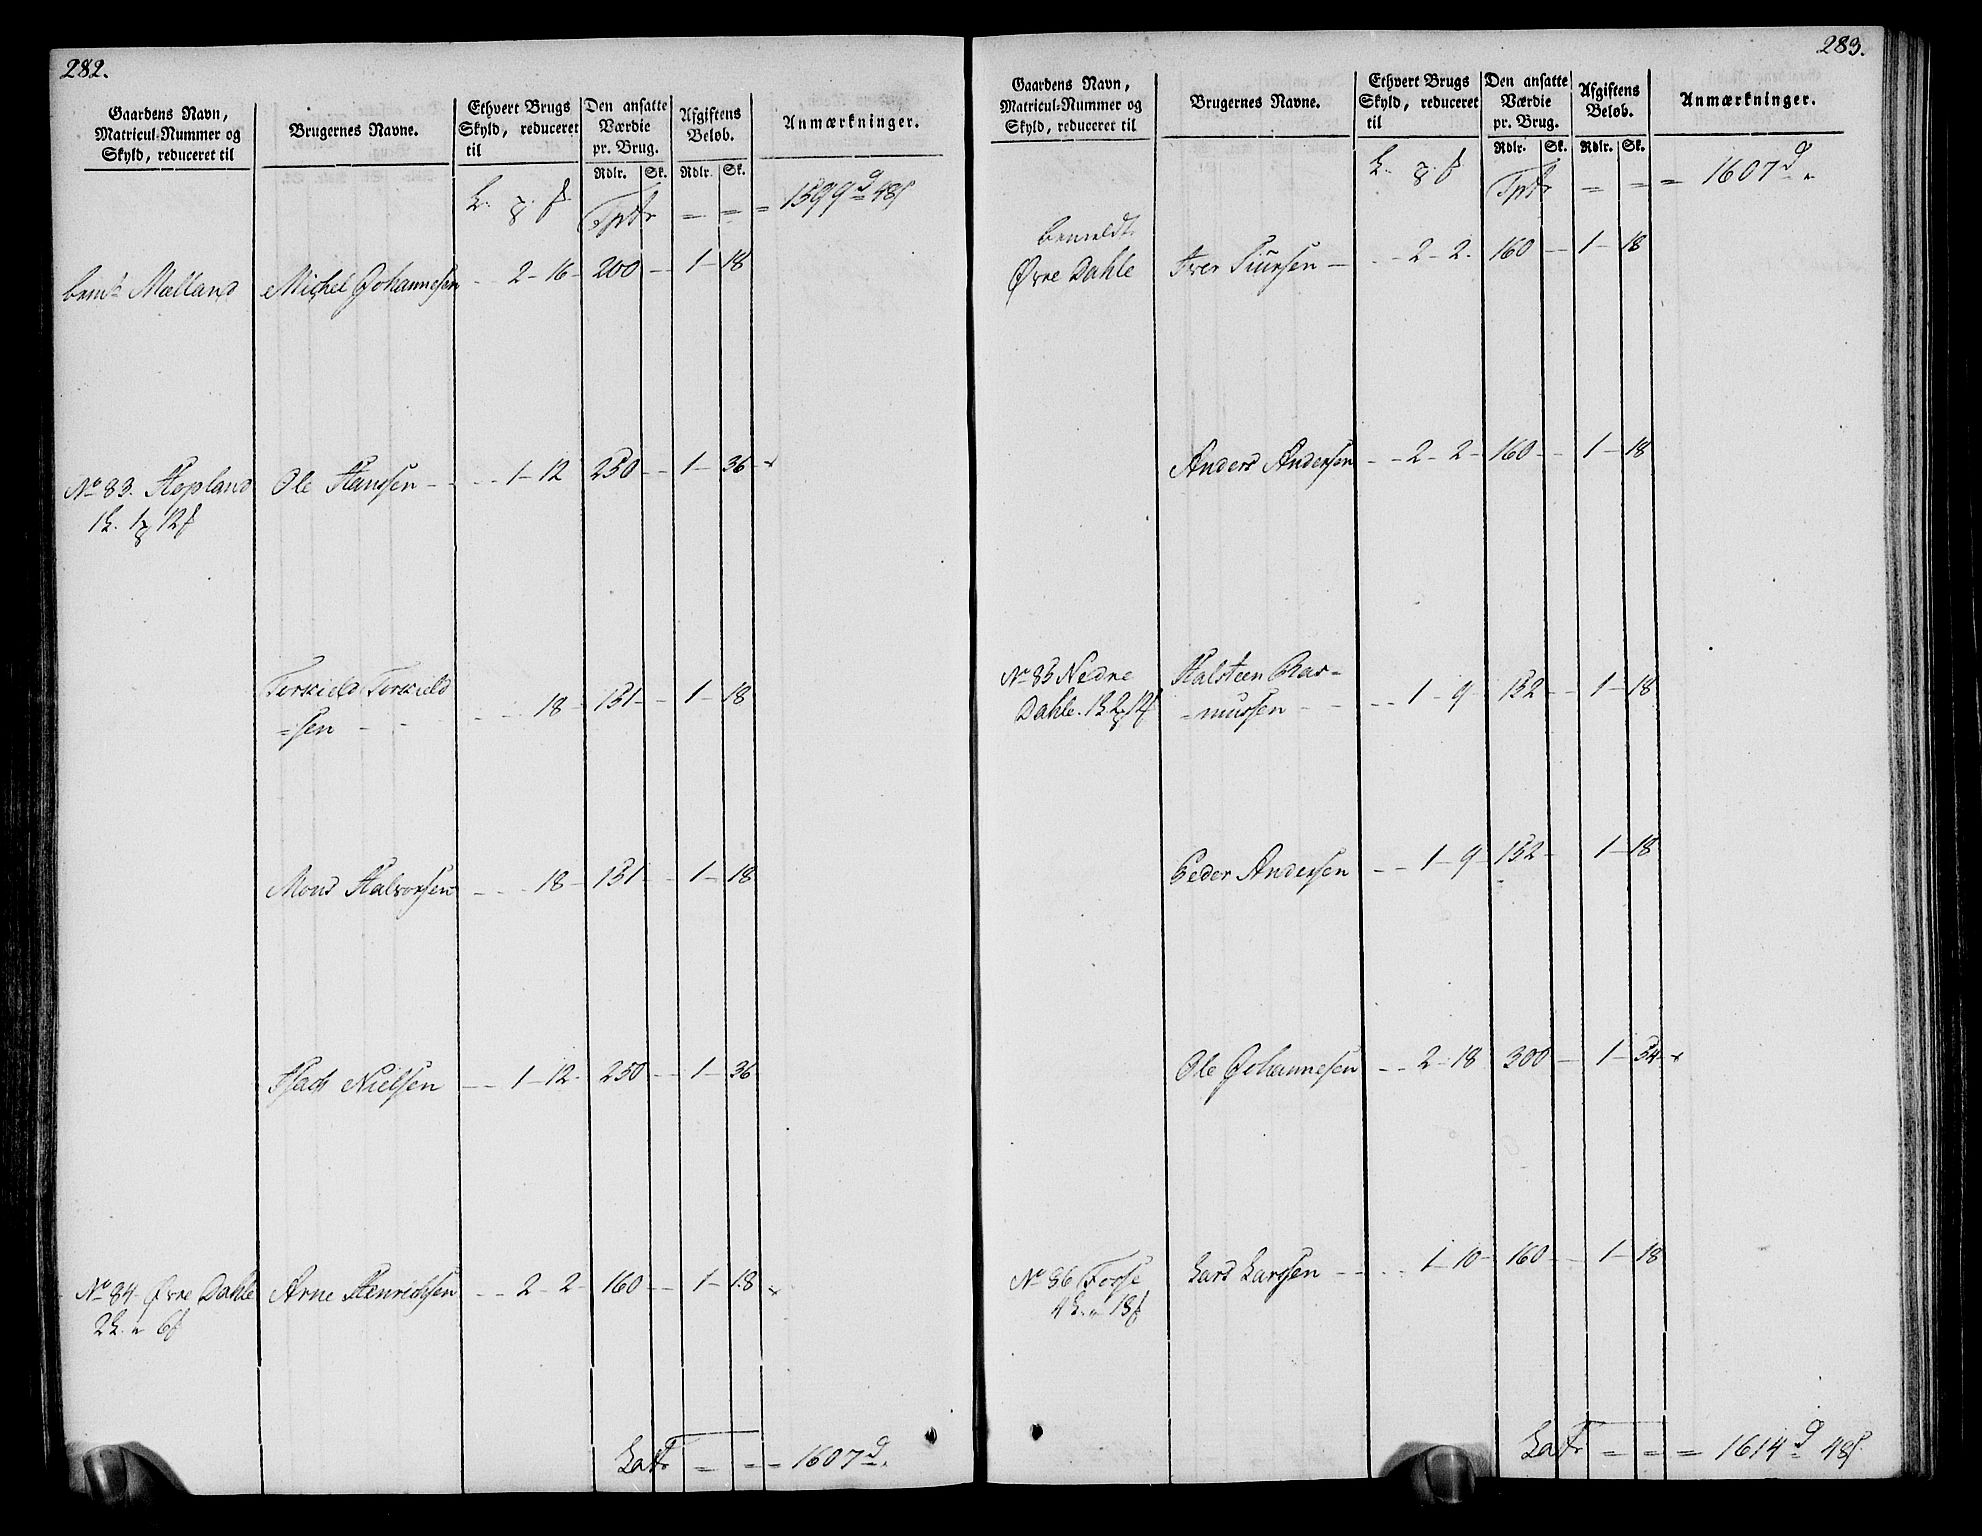 282.
Gaardens Navn, Matricul-Nummer og Skyld, reduceret til
Brugernes Navne.
Ethvert Brugs Skyld, reduceret til
Den ansatte Værdie pr. Brug.
Afgiftens Beløb.
Anmærkninger.
Rdlr. Sk. Rdlr. Sk.
Tptr = = = 1599 d 48 s
bem.t Mælland Michel Johannesen - - 2 - 16 - 200 - - 1 - 18
No 83. Hopland Ole Hanssen - - - 1 - 12 250 - - 1 - 36 -
12f
Torkield Torkield
=sen - - - - 18 - 151 - - 1 - 18
Mons Halvorsen - - - 18 - 151 - - 1 - 18
Isach Nielsen - - 1 - 12 - 250 - - 1 - 36
No 84 Øvre Dahle Arne Henrichsen - - 2 - 2 - 160 - - 1 - 18
6f
Latr = = = 1607 d
283.
Gaardens Navn, Matricul-Nummer og Skyld, reduceret til
Brugernes Navne.
Ethvert Brugs Skyld, reduceret til
Den ansatte Værdie pr. Brug.
Afgiftens Beløb.
Anmærkninger.
Rdlr. Sk. Rdlr. Sk.
Tptr = = = 1607 d "
bemeldt
Øvre Dahle Iver Siursen - - - 2 - 2 - 160 - - 1 - 18
Anders Andersen - - 2 - 2 - 160 - - 1 - 18
No 85 Nedre Halsteen Ras=
Dahle. =mussen - - - 1 - 9 - 152 - - 1 - 18
Peder Andersen - - 1 - 9 - 152 - 1 - 18
Ole Johannesen - - 2 - 18 300 - - 1 - 54
No 86 Fosse Lars Larssen - - - 1 - 10 - 160 - - 1 - 18
18f
Latr = = = 1614 d 48 s